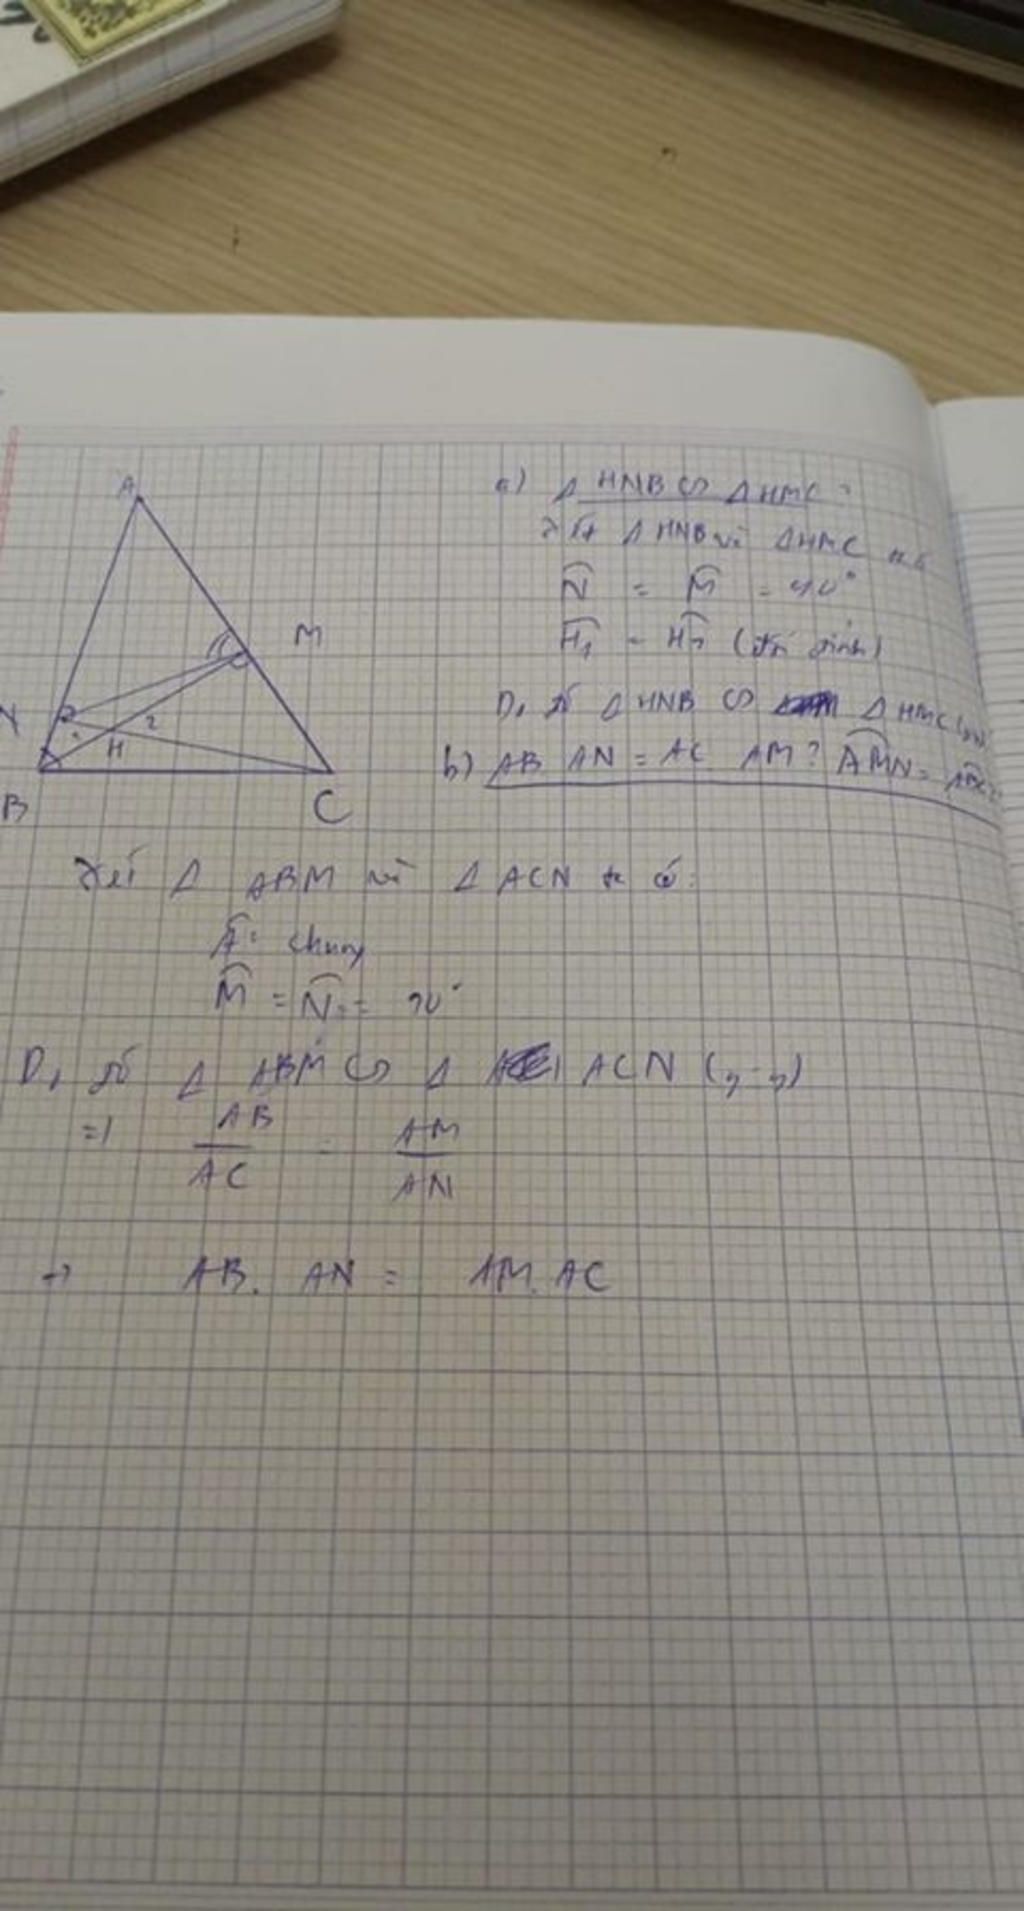 A
M
N
2
H
B
C
a) Δ HNB ∽ Δ HMC ?
Xét Δ HNB và Δ HMC
N̂ = M̂ = 90°
Ĥ₁ = Ĥ₂ (đối đỉnh)
Do đó Δ HNB ∽ Δ HMC
b) AB AN = AC AM ? AMN =
Xét Δ ABM và Δ ACN ta có:
Â: chung
M̂ = N̂ = 90°
Do đó Δ ABM ∽ Δ ACN (g-g)
=> AB/AC = AM/AN
→ AB. AN = AM. AC